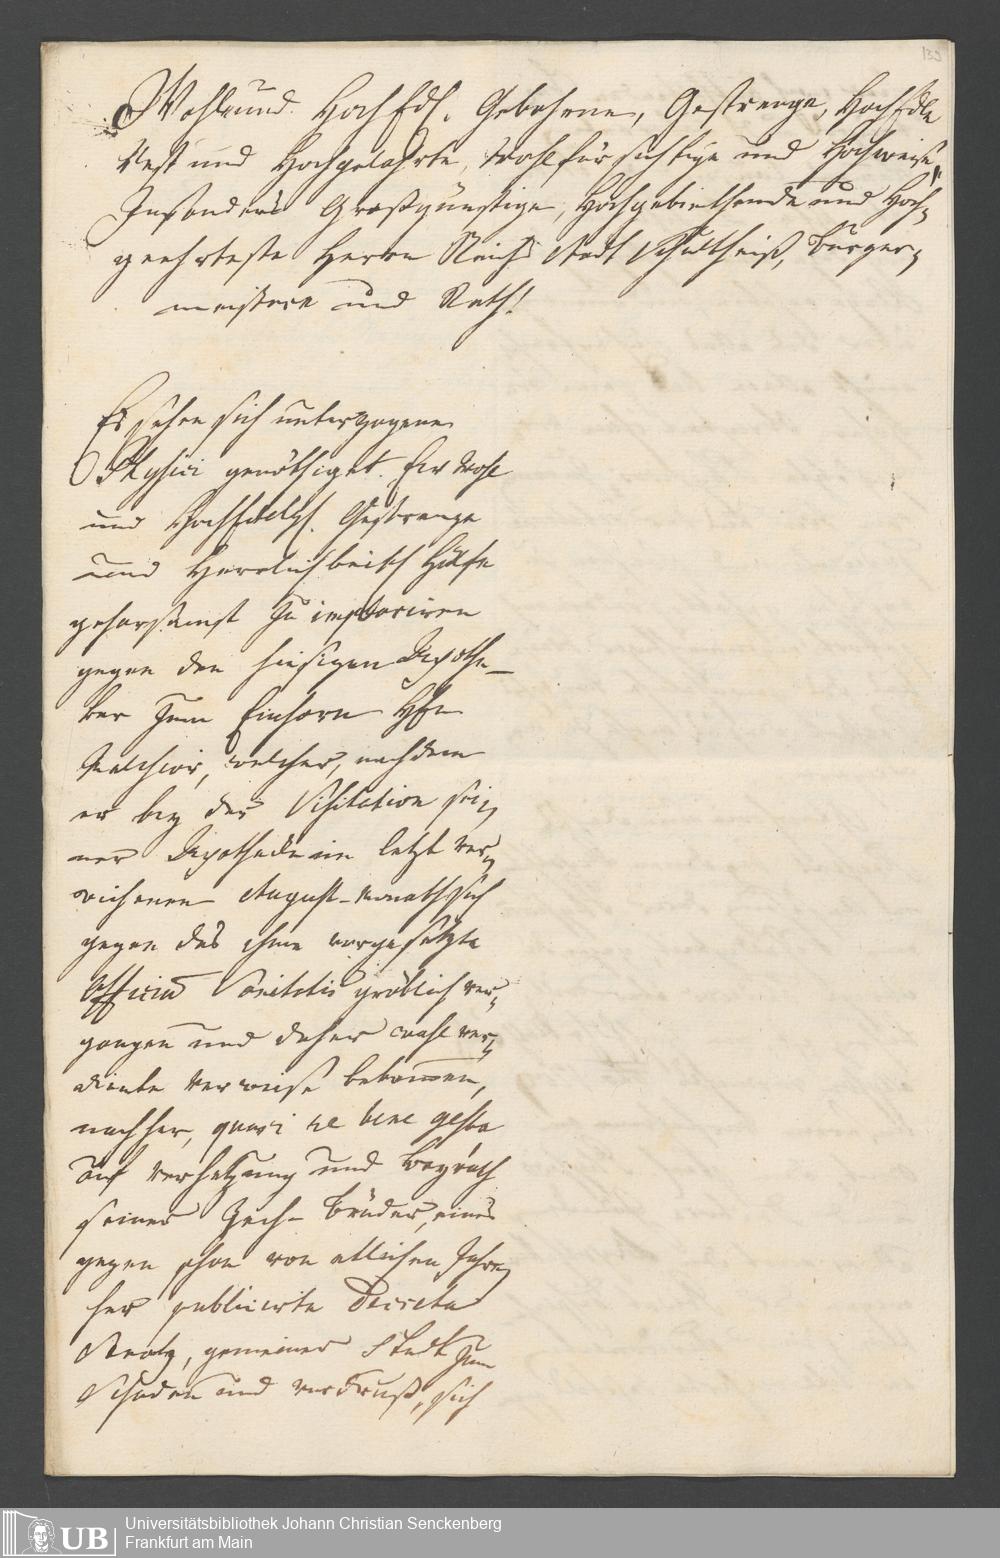 139
Wohl und HochEdl. Gebohrne, Gestrenge, HochEdle
Vest und Hochgelahrte, Wohlfürsichtige und Hochweise,
Insonders Großgünstige, Hochgebiethende und Hoch-
geehrteste Herren Reichs Stadt Schultheiß, Burger-
meistere und Rath!
Es sehen sich unterzogene
Physici genöthiget Ew Wohl
und HochEdelg. Gestrenge
und Herrlichkeiten Hülfe
gehorsamst zu imploriren
gegen den hiesigen Apothe-
ker zum Einhorn Hrn
Melchior, welcher, nachdem
er bey der Visitation sei-
ner Apotheke im letzt ver-
wichenen August-monath sich
gegen das ihme vorgesetzte
Officium Sanitatis gröblich ver-
gangen und daher wohl ver-
diente Verweise bekommen,
nachher, quasi re bene gesta
auf Verhetzung und Beyrath
seiner Zech-Brüder, eines
gegen schon von etlichen Jahren
her publicirte Decreta
Senatus, gemeiner Stadt zum
Schaden und Verdruß, sich
UB
Universitätsbibliothek Johann Christian Senckenberg
Frankfurt am Main